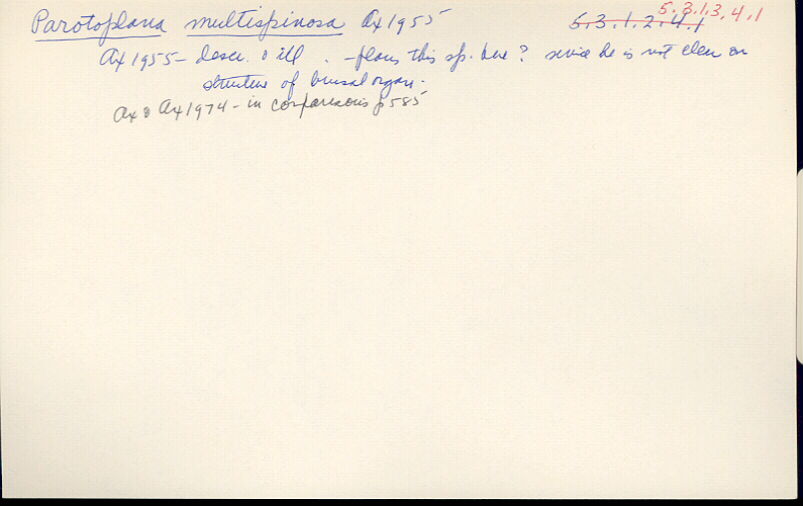 Parotoplana multispinosa Ax 1955
5.3.1.2.4.1
5.3.1.3.4.1
Ax 1955 - descr. & ill. - place this sp. here? since he is not clear on
structure of bursal organ.
Ax & Ax 1974 - in comparisons p 585